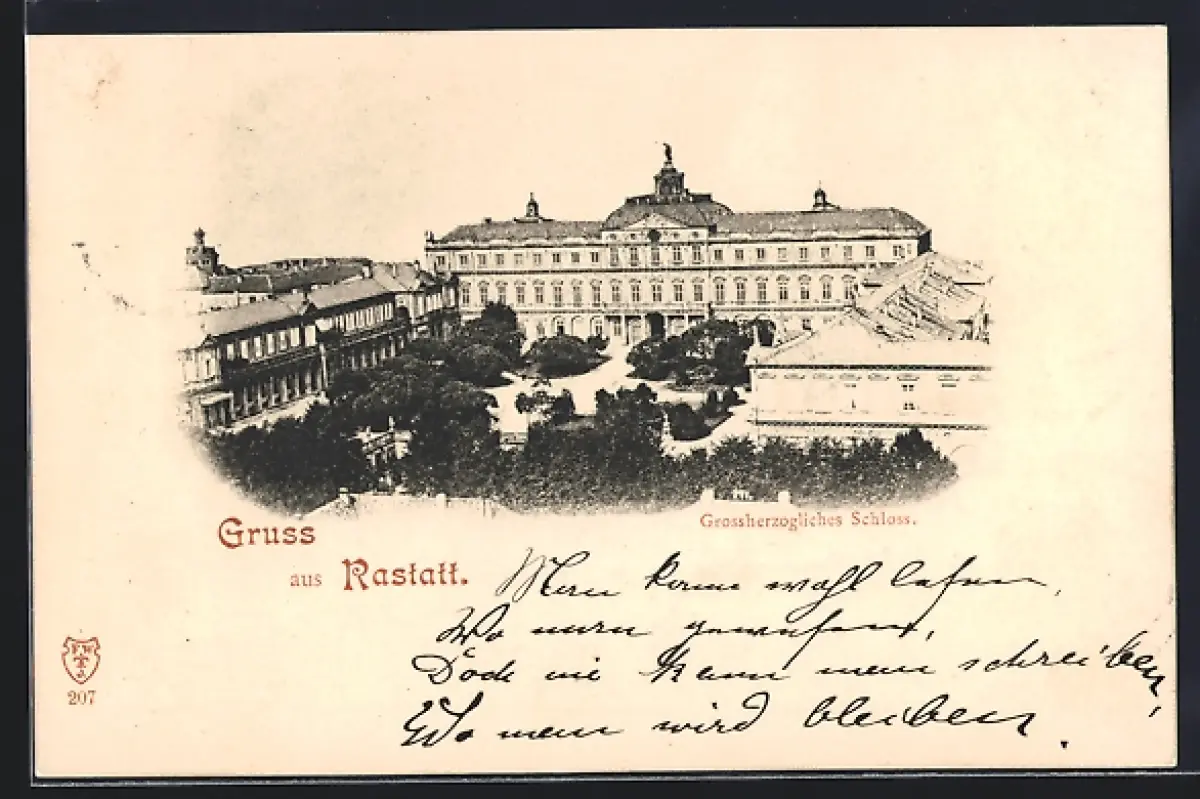 Grossherzogliches Schloss.
Gruss
aus Rastatt.
Man kann wohl lesen,
Wo man gewesen,
Doch nie kann man schreiben,
Wo man wird bleiben.
F W
207